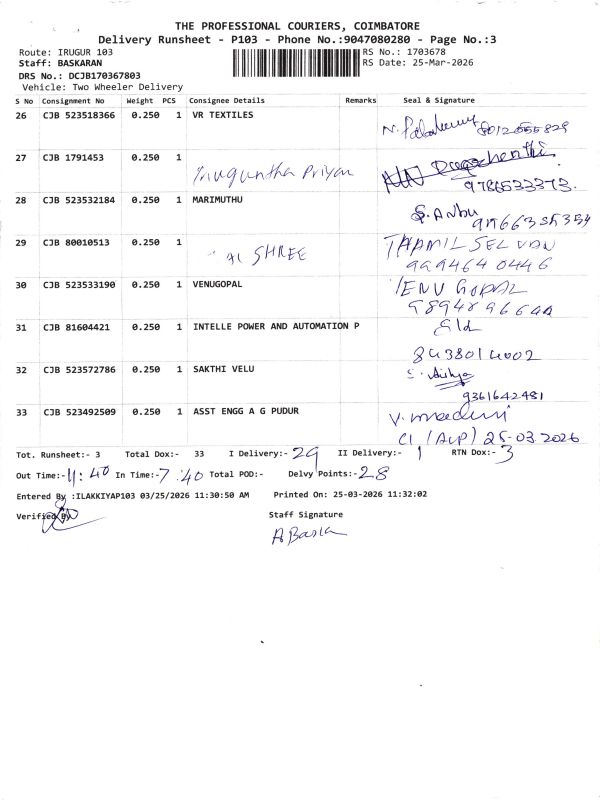 THE PROFESSIONAL COURIERS, COIMBATORE
Delivery Runsheet - P103 - Phone No.:9047080280 - Page No.:3
Route: IRUGUR 103 RS No.: 1703678
Staff: BASKARAN RS Date: 25-Mar-2026
DRS No.: DCJB170367803
Vehicle: Two Wheeler Delivery
S No Consignment No Weight PCS Consignee Details Remarks Seal & Signature
26 CJB 523518366 0.250 1 VR TEXTILES
27 CJB 1791453 0.250 1 Priyan
9786533373.
28 CJB 523532184 0.250 1 MARIMUTHU S. Anbu
29 CJB 80010513 0.250 1 SHREE THAMIL SELVAN
999464 0446
30 CJB 523533190 0.250 1 VENUGOPAL VENU GOPAL
31 CJB 81604421 0.250 1 INTELLE POWER AND AUTOMATION P
8438014002
32 CJB 523572786 0.250 1 SAKTHI VELU
9361642481
33 CJB 523492509 0.250 1 ASST ENGG A G PUDUR V.
25-03-2026
Tot. Runsheet:- 3 Total Dox:- 33 I Delivery:- 29 II Delivery:- 1 RTN Dox:- 3
Out Time:- 11:40 In Time:- 7:40 Total POD:- Delvy Points:- 28
Entered By :ILAKKIYAP103 03/25/2026 11:30:50 AM Printed On: 25-03-2026 11:32:02
Verified By Staff Signature